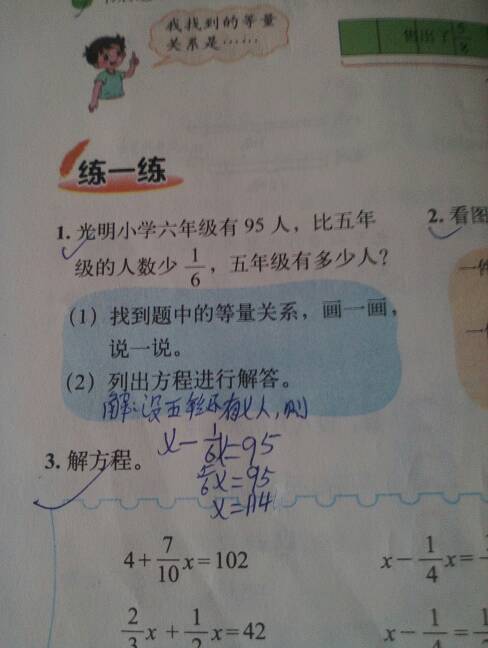 我找到的等量
关系是……
售出了5/8
练一练
1. 光明小学六年级有 95 人，比五年
级的人数少 1/6，五年级有多少人？
(1) 找到题中的等量关系，画一画，
说一说。
(2) 列出方程进行解答。
解：设五年级有x人，则
x－1/6x=95
5/6x=95
x=114
2. 看图
一件
一
3. 解方程。
4+7/10x=102
x－1/4x=
2/3x+1/2x=42
x－1/4=